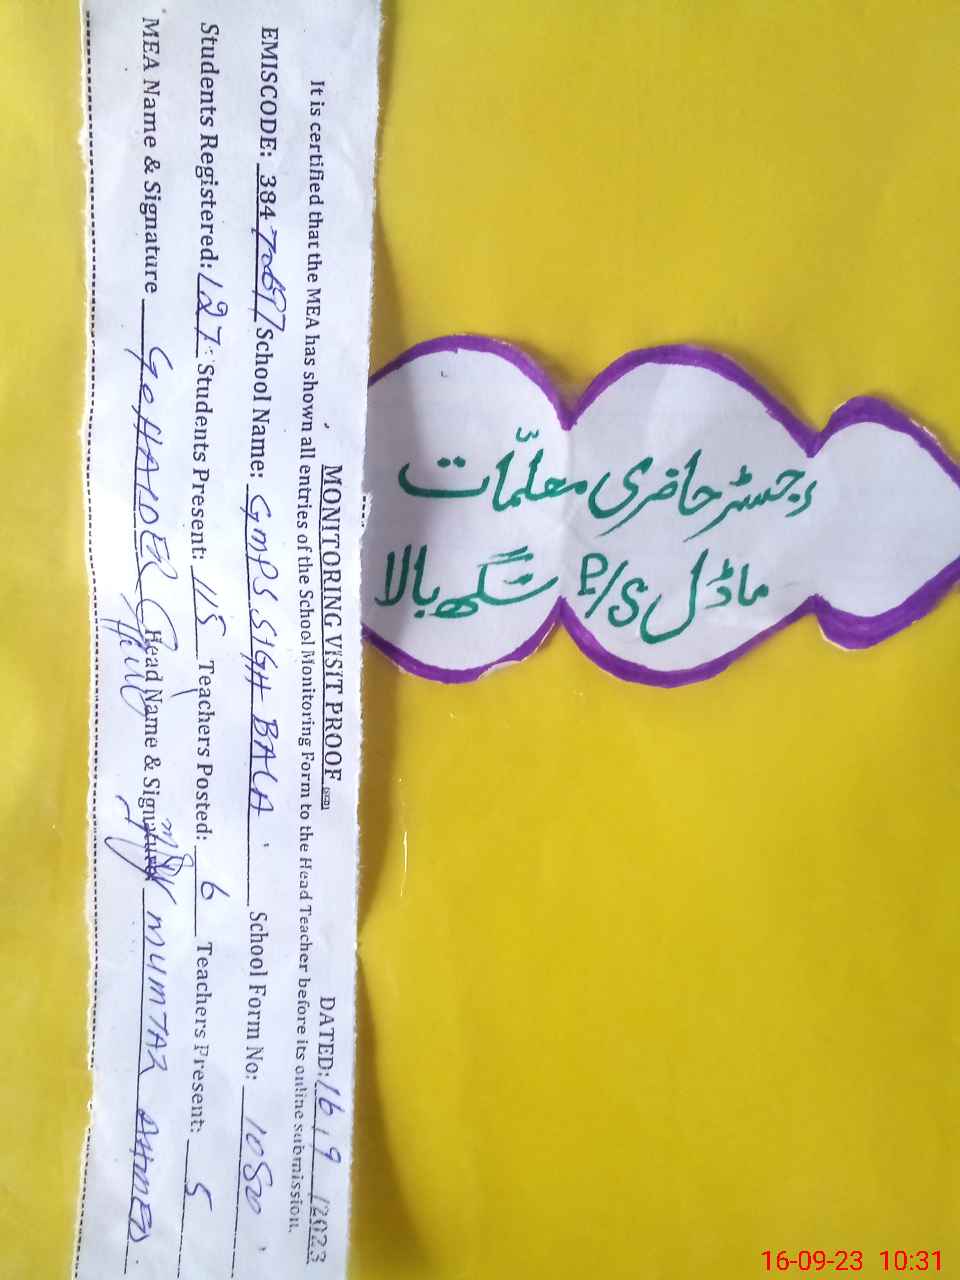 MONITORING VISIT PROOF
DATED: 16/9/2023
It is certified that the MEA has shown all entries of the School Monitoring Form to the Head Teacher before its online submission.
EMISCODE: 38470697 School Name: GMPS SIGH BALA School Form No: 1080
Students Registered: 127 Students Present: 115 Teachers Posted: 6 Teachers Present: 5
MEA Name & Signature G. HAIDER Head Name & Signature MUMTAZ AHMED
رجسٹر حاضری معلمّات
ماڈل P/S سگھ بالا
16-09-23 10:31